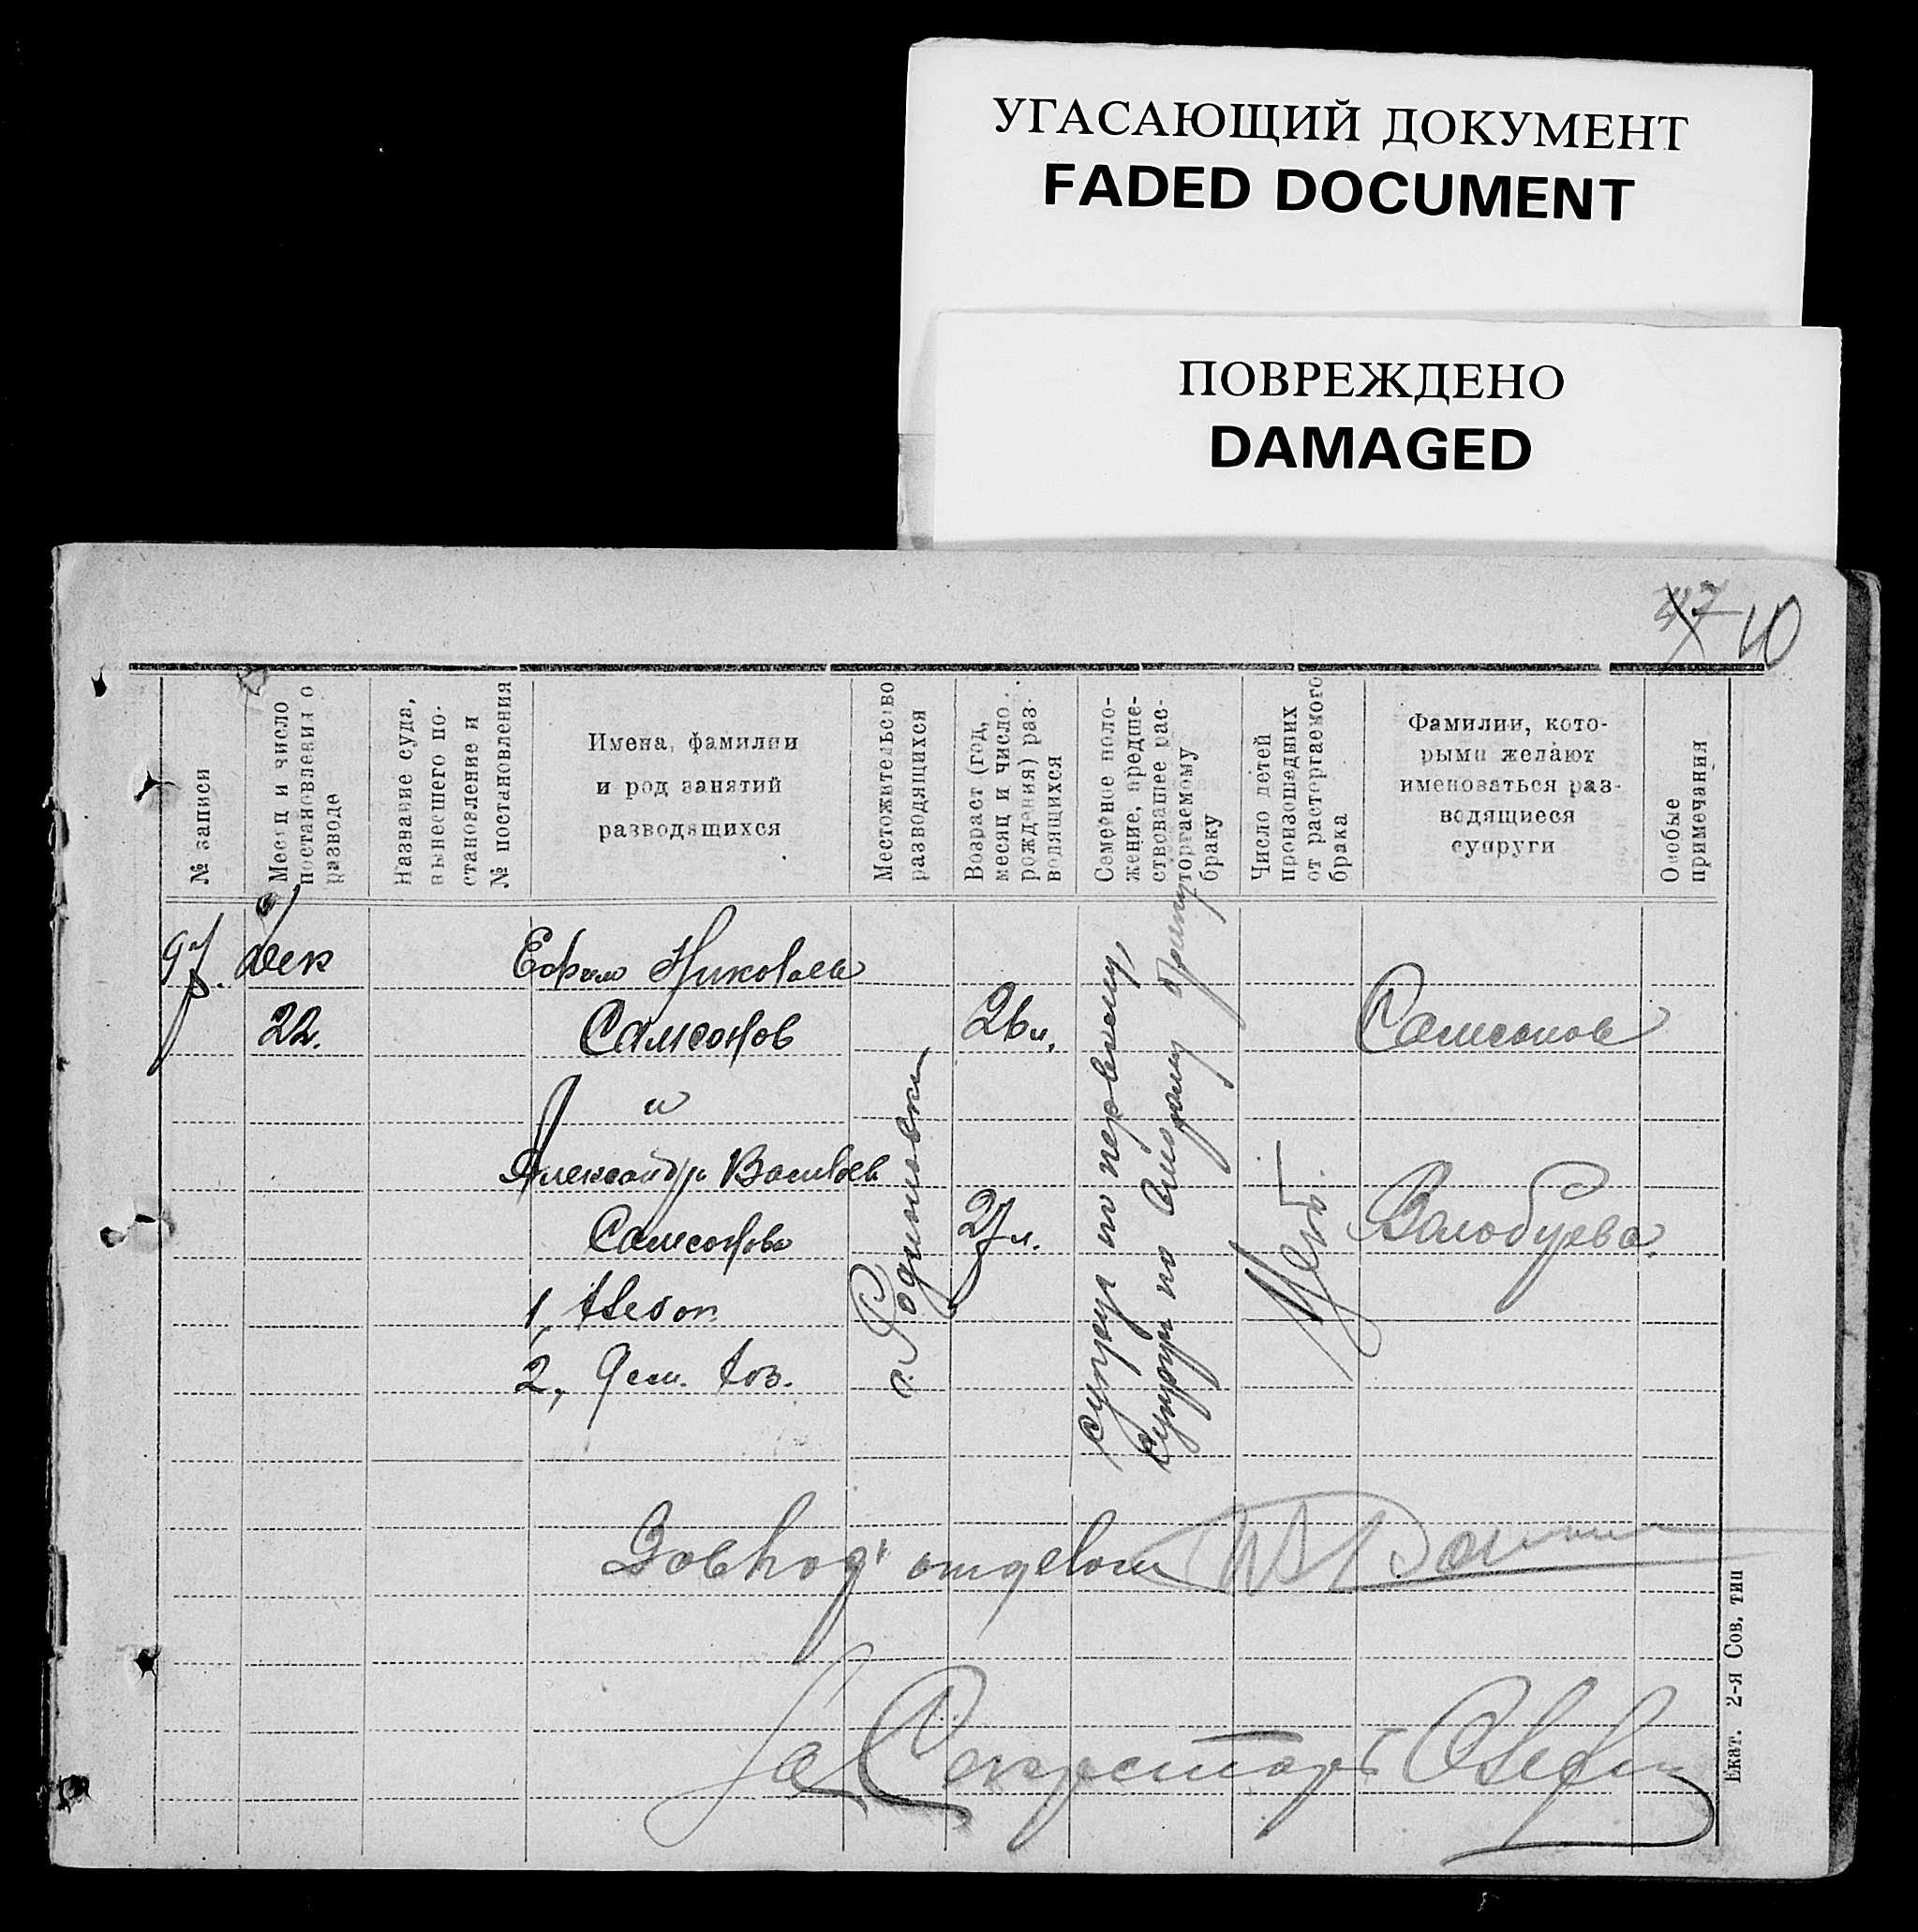 УГАСАЮЩИЙ ДОКУМЕНТ
FADED DOCUMENT
ПОВРЕЖДЕНО
DAMAGED
47 10
№ записи
Месяц и число
постановления о
разводе
Название суда,
вынесшего по-
становление и
№ постановления
Имена, фамилии
и род занятий
разводящихся
Местожительство
разводящихся
Возраст (год,
месяц и число
рождения) раз-
водящихся
Семейное поло-
жение, предше-
ствовавшее рас-
торгаемому
браку
Число детей
происшедших
от расторгаемого
брака
Фамилии, кото-
рыми желают
именоваться раз-
водящиеся
супруги
Особые
примечания
Дек
22.
Николаев
Самсонов
и
Александра
Самсонова
1,
2,
26 л.
27 л.
с.
супруг по первому,
супруга по второму браку
Самсонов
отделом
За Секретарь
Екат. 2-я Сов. тип